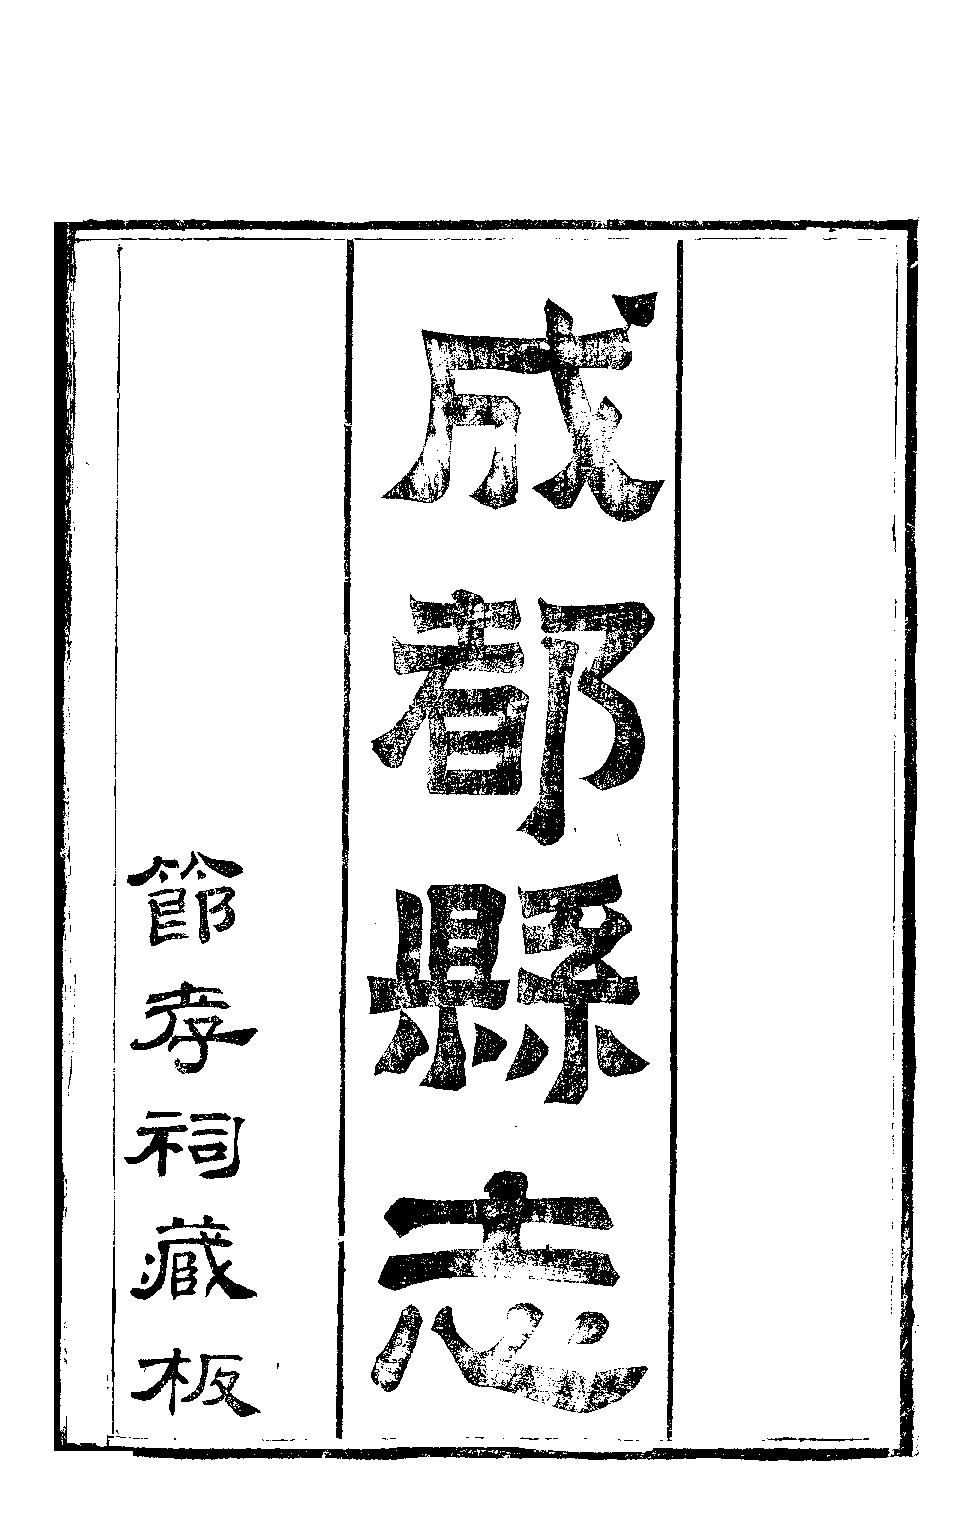 成都縣志
節孝祠藏板